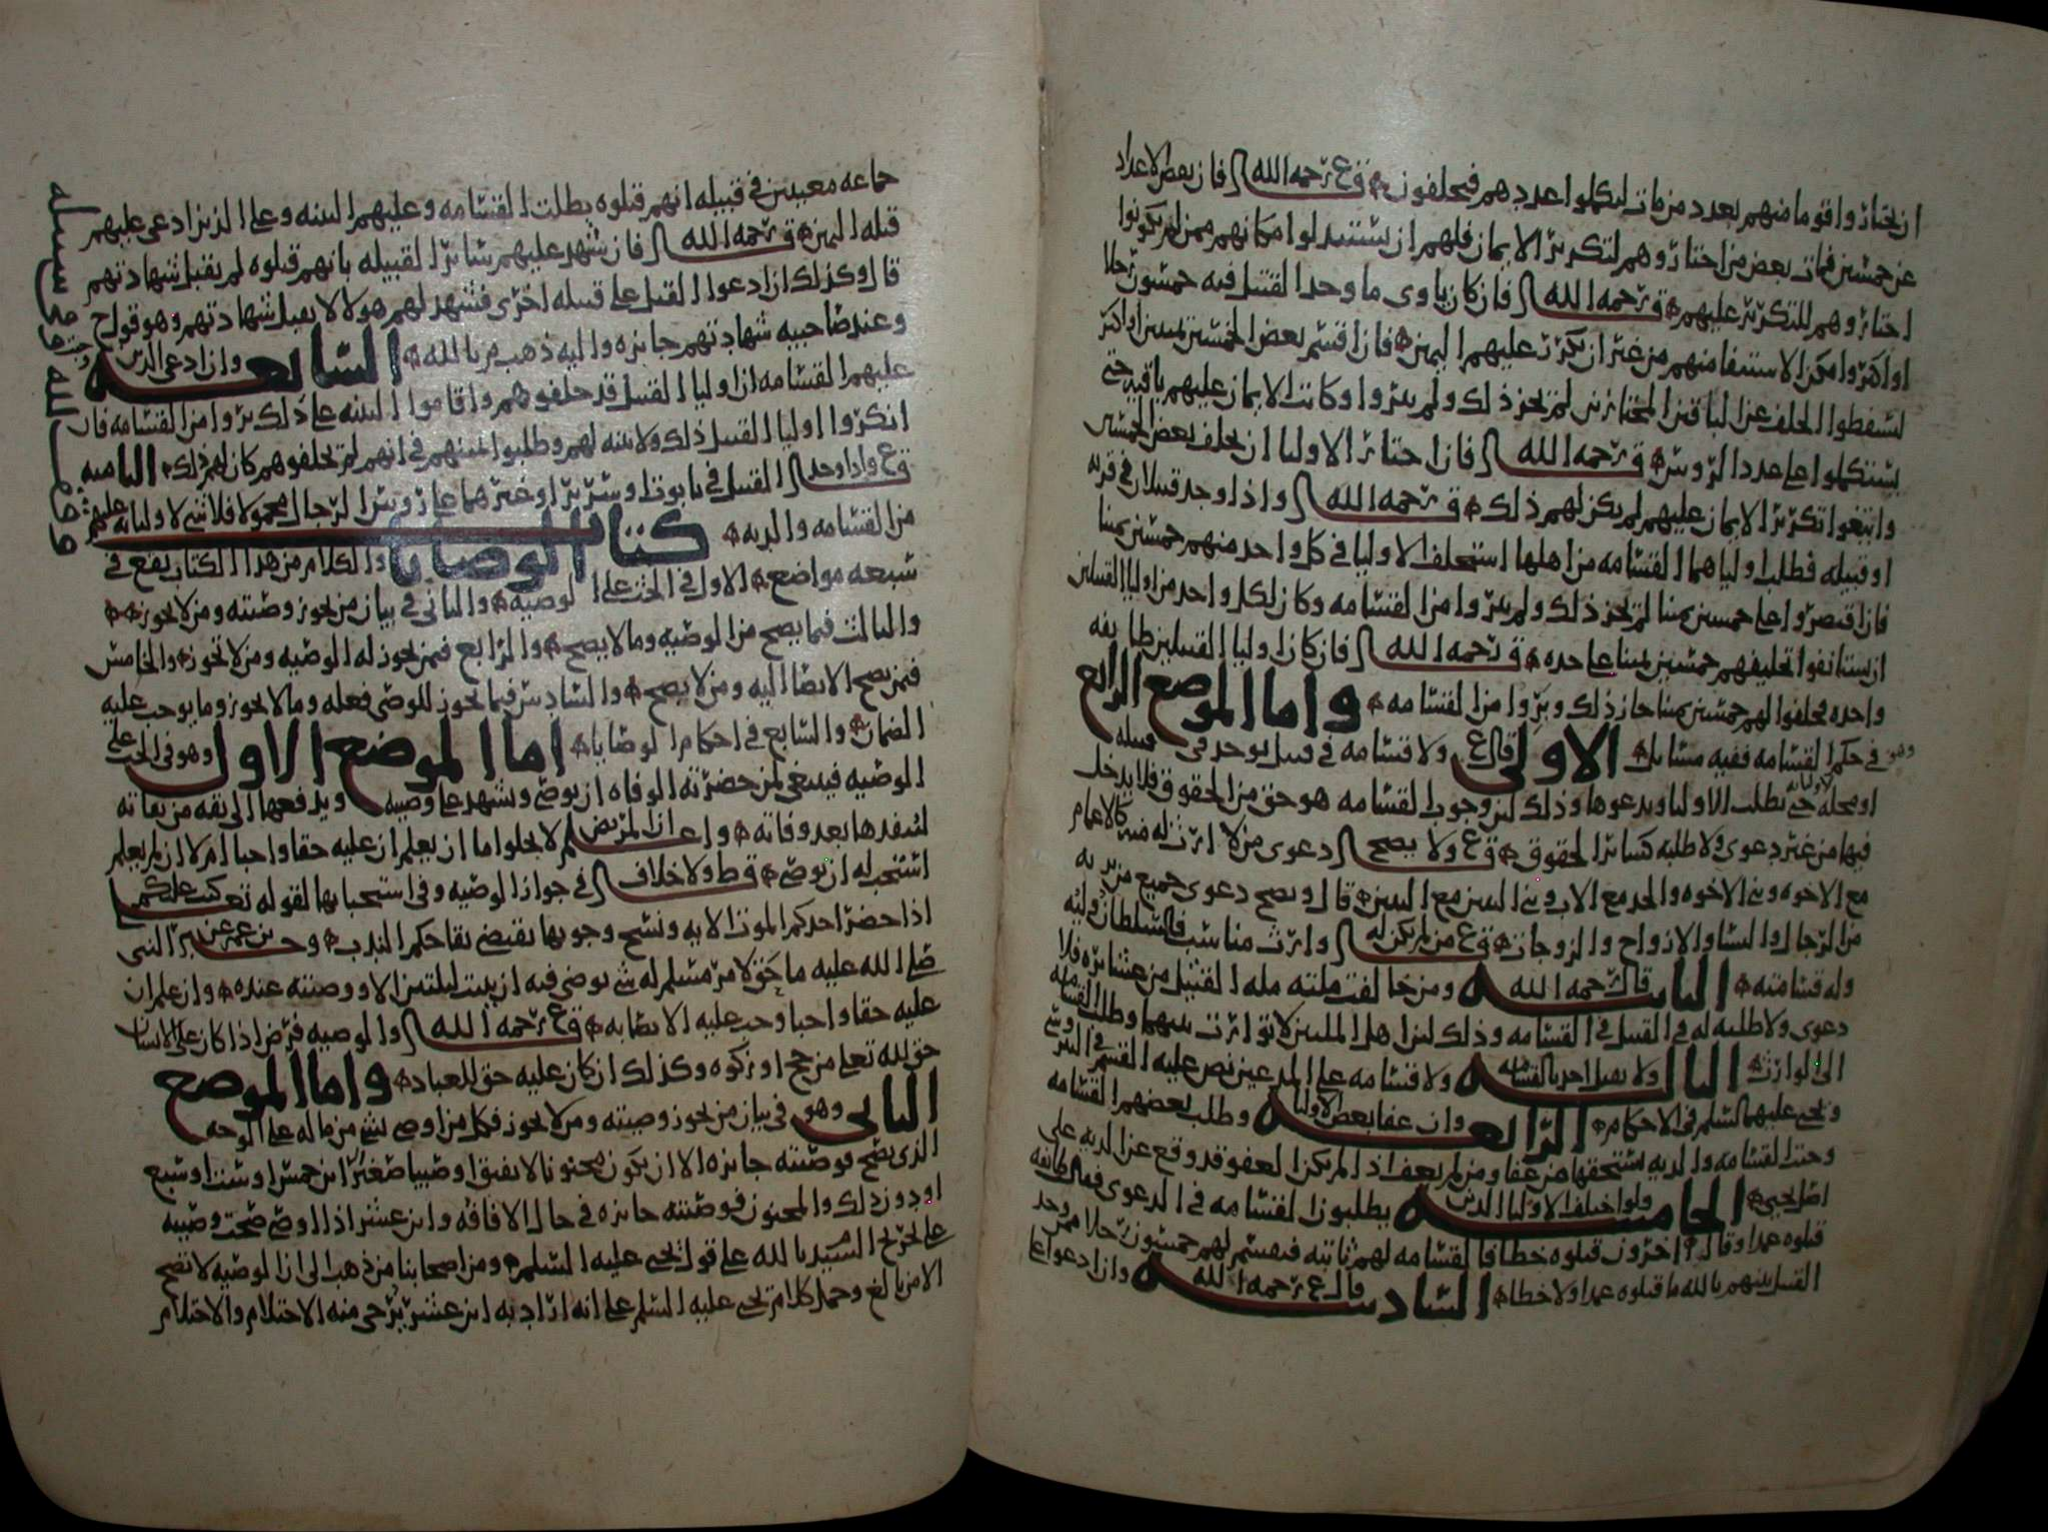 ان يختاروا قوما منهم بعدد من مات ليكملوا عددهم فيحلفون قع رحمه الله فان بعض الاعداد
عن خمسين فمات بعض من اختاروهم لتكرير الايمان فلهم ان يستبدلوا مكانهم ممن لم يكونوا
اختاروهم للتكرير عليهم ق رحمه الله فان كان باوى ما وجد القتيل فيه خمسون رجلا
او اكثر وامكن الاستيفا منهم من غير ان تكرر عليهم اليمين فان اقسم بعض الخمسين يمينين او اكثر
ليسقطوا الحلف عن الباقين المختارين لم يجز ذلك ولم يبروا وكانت الايمان عليهم باقية حتى
يستكملوا على عدد الروس ق رحمه الله فان اختار الاوليا ان يحلف بعض الخمسين
وابتغوا تكرير الايمان عليهم لم يكن لهم ذلك ق رحمه الله واذا وجد قتيلان في قرية
او قبيله فطلب اولياهما القسامه من اهلها استحلف الاوليا في كل واحد منهم خمسين يمينا
فان اقتصروا على خمسين يمينا لم يجز ذلك ولم يبروا من القسامه وكان لكل واحد من اوليا القتيلين
ان يستانفوا تحليفهم خمسين يمينا على حده ق رحمه الله فان كان اوليا القتيلين طايفه
واحده فحلفوا لهم خمسين يمينا جاز ذلك وبروا من القسامه واما الموضع الرابع
وهو في حكم القسامه ففيه مسايل الاولى قال ع ولا قسامه في قتيل يوجد في قبيله
او محله حتى يطلب الاوليا ويدعوها وذلك لان وجوب القسامه هو حق من الحقوق فلا يدخل
فيها من غير دعوى ولا طلبه كساير الحقوق قع ولا يصح دعوى من لا ارث له فيه كالاعمام
مع الاخوه وبني الاخوه والجد مع الاب وبني البنين مع البنين قال ويصح دعوى جميع من يرثه
من الرجال والنسا والازواج والزوجات قع من لم يكن له وارث مناسب فالسلطان وليه
وله قسامته الثانيه قال رحمه الله ومن خالفت ملته مله القتيل من عشائره فلا
دعوى ولا طلبه له في القتيل في القسامه وذلك لان اهل الملتين لا توارث بينهما وطلب القسامه
الى الوارث الثالثه ولا يقبل احد بالقسامه ولا قسامه على المدعين نص عليه القسم
ويحيى عليهما السلم في الاحكام الرابعه وان عفا بعض الاوليا وطلب بعضهم القسامه
وجبت القسامه والديه يستحقها من عفا ومن لم يعف اذا لم يكن العفو قد وقع عن الديه على
اصل يحيى الخامسه ولو اختلف الاوليا الذين يطلبون القسامه في الدعوى فقال طايفه
قتلوه عمدا وقال اخرون قتلوه خطا فالقسامه لهم ثابته فيقسم لهم خمسون رجلا ممن وجد
القتيل بينهم بالله ما قتلوه عمدا ولا خطا السادسه قال ع رحمه الله وان ادعوا على
جماعه معينين في قبيله انهم قتلوه بطلت القسامه وعليهم البينه وعلى الذين ادعي عليهم
قتله اليمين ق رحمه الله فان شهد عليهم ساير القبيله بانهم قتلوه لم يقبل شهادتهم
قال وكذلك ان ادعوا القتل على قبيله اخرى فشهد لهم هولا لا يقبل شهادتهم وهو قول ح
وعند صاحبيه شهادتهم جايزه واليه ذهب م بالله السابعه وان ادعى الذين
عليهم القسامه ان اوليا القتيل قد حلفوهم واقاموا البينه على ذلك بروا من القسامه فان
انكروا اوليا القتيل ذلك ولا بينه لهم وطلبوا يمينهم في انهم لم يحلفوهم كان لهم ذلك الثامنه
قع واذا وجد القتيل في تابوت او سرير او غيرهما على روس الرجال محمولا فلا شي لاوليائه عليهم
من القسامه والديه كتاب الوصايا والكلام من هذا الكتاب يقع في
سبعه مواضع الاول في الحث على الوصيه والثاني في بيان من يجوز وصيته ومن لا يجوز
والثالث فيما يصح من الوصيه وما لا يصح والرابع فيمن يجوز له الوصيه ومن لا تجوز والخامس
فيمن يصح الايصا اليه ومن لا يصح والسادس فيما يجوز للوصي فعله وما لا يجوز وما يوجب عليه
الضمان والسابع في احكام الوصايا اما الموضع الاول وهو في الحث على
الوصيه فينبغي لمن حضرته الوفاه ان يوصي ويشهد على وصيه ويدفعها الى ثقه من ثقاته
لينفذها بعد وفاته واعلم ان المريض لا يخلوا اما ان يعلم ان عليه حقا واجبا ام لا ان لم يعلم
استحب له ان يوصي قط ولا خلاف في جواز الوصيه وفي استحبابها لقوله تع كتب عليكم
اذا حضر احدكم الموت الايه ونسخ وجوبها يقتضي بقا حكم الندب وخبر بن عمر عن النبي
صلى الله عليه ما حق لامر مسلم له شي يوصي فيه ان يبيت ليلتين الا ووصيته عنده وان علم ان
عليه حقا واجبا وجب عليه الايصا به قع رحمه الله والوصيه فرض اذا كان على الانسان
حق لله تعلى من حج او زكوه وكذلك ان كان عليه حق للعباد واما الموضع
الثاني وهو في بيان من يجوز وصيته ومن لا يجوز فكل من اوصى بشي من ماله على الوجه
الذي يصح فوصيته جايزه الا ان يكون مجنونا لا يفيق او صبيا صغيرا ابن خمس او ست او سبع
او دون ذلك والمجنون فوصيته جايزه في حال الافاقه وابن عشر اذا اوصى صحت وصيته
على تخريج السيد بالله على قول يحيى عليه السلم ومن اصحابنا من ذهب الى ان الوصيه لا تصح
الا من بالغ وحمل كلام يحيى عليه السلم على انه اراد به ابن عشر يرجى منه الاحتلام والاحتلام